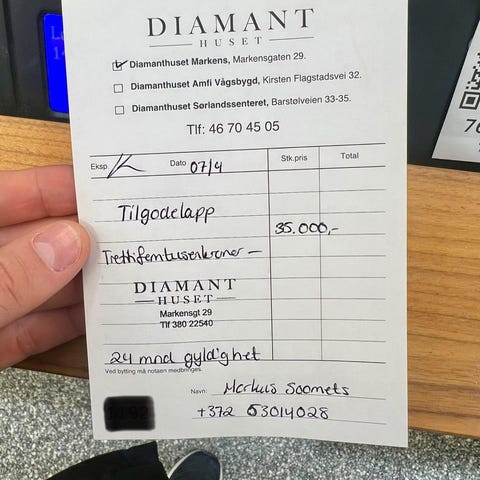 DIAMANT
HUSET
Diamanthuset Markens, Markensgaten 29.
Diamanthuset Amfi Vågsbygd, Kirsten Flagstadsvei 32.
Diamanthuset Sørlandssenteret, Barstølveien 33-35.
Tlf: 46 70 45 05
Eksp. K Dato 07/4 Stk.pris Total
Tilgodelapp
35.000,-
Trettifemtusenkroner -
DIAMANT
HUSET
Markensgt 29
Tlf 380 22540
24 mnd gyldighet
Ved bytting må notaen medbringes.
Navn: Markus Soomets
+372 53014028